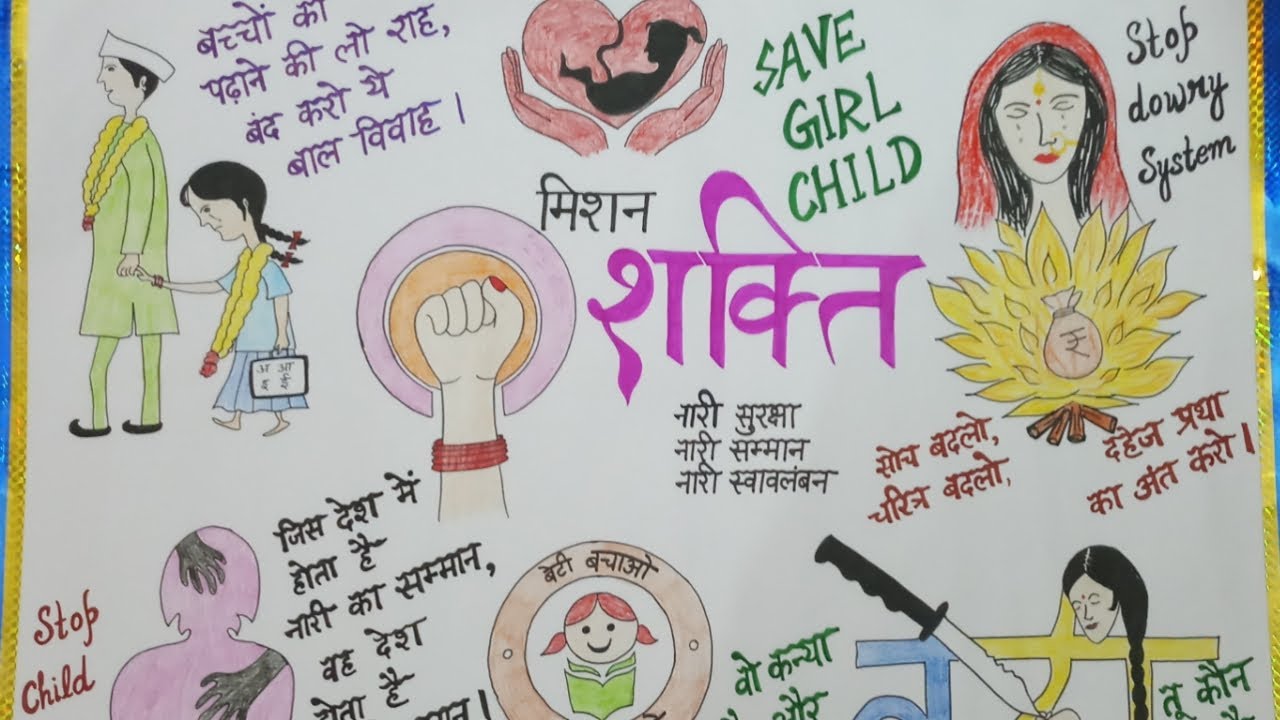 बच्चों को
पढ़ाने की लो राह,
बंद करो ये
बाल विवाह।
SAVE
GIRL
CHILD
Stop
dowry
System
मिशन
शक्ति
नारी सुरक्षा
नारी सम्मान
नारी स्वावलंबन
अ आ
इ ई
₹
सोच बदलो,
चरित्र बदलो,
दहेज प्रथा
का अंत करो।
जिस देश में
होता है
नारी का सम्मान,
वह देश
होता है
Stop
Child
बेटी बचाओ
वो कन्या
और
तू कौन